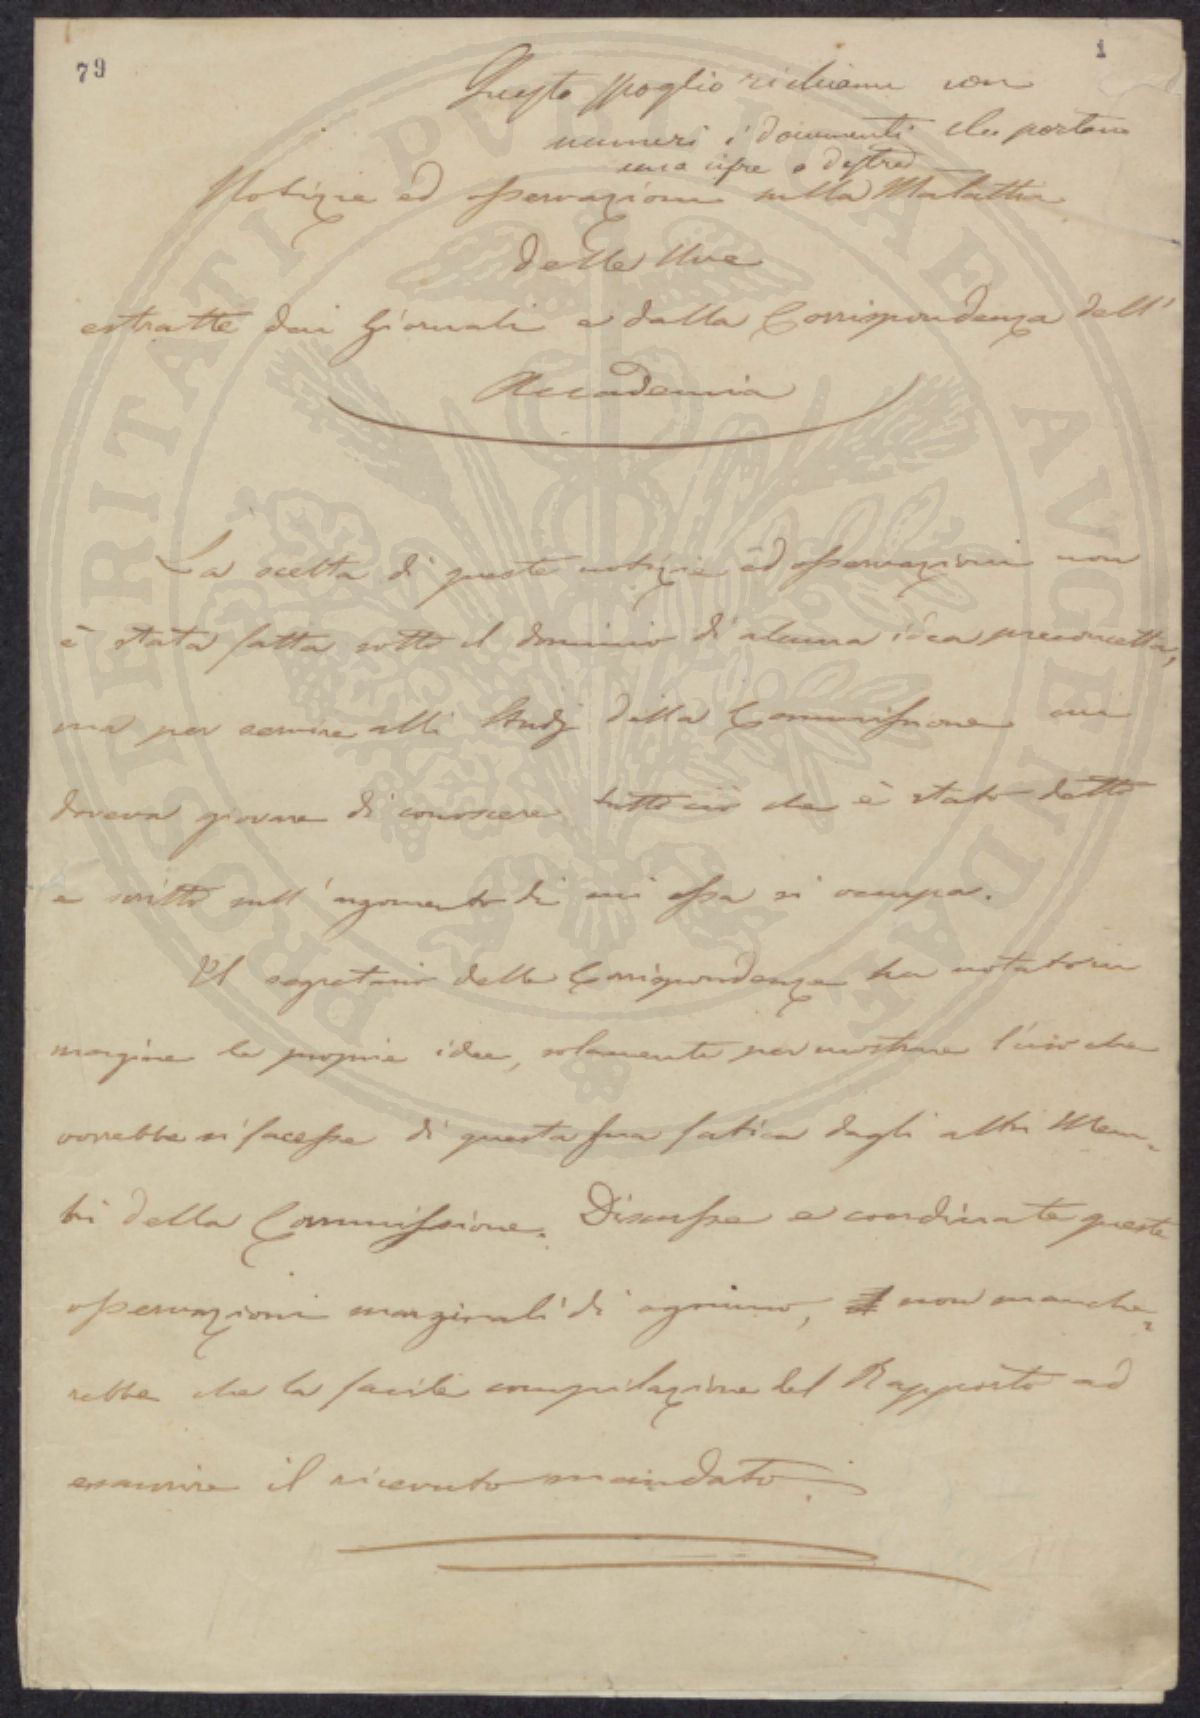 79
1
Questo spoglio richiama con
numeri i documenti che portano
una cifra a destra
Notizie ed osservazioni sulla Malattia
delle Uve
estratte dai Giornali e dalla Corrispondenza dell'
Accademia
La scelta di queste notizie ed osservazioni non
è stata fatta sotto il dominio di alcuna idea preconcetta,
ma per servire alli Studj della Commissione cui
doveva giovare di conoscere tutto ciò che è stato detto
e scritto sull'argomento di cui essa si occupa.
Il segretario delle Corrispondenze ha notato in
margine le proprie idee, solamente per mostrare l'uso che
vorrebbe si facesse di questa sua fatica dagli altri Mem-
bri della Commissione. Discusse e coordinate queste
osservazioni marginali di ognuno, non manche-
rebbe che la facile compilazione del Rapporto ad
esaurire il ricevuto mandato.
PROSPERITATI PVBLICAE AVGENDAE